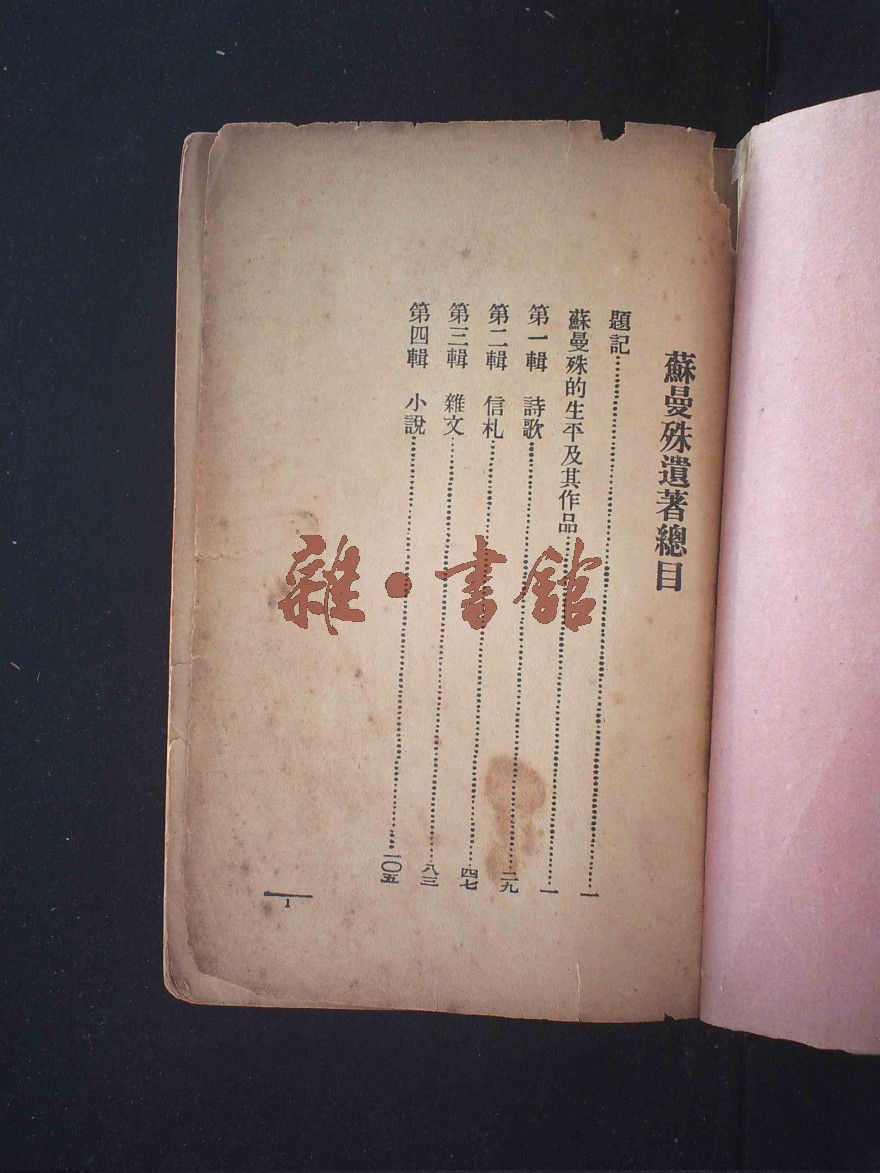 蘇曼殊遺著總目
題記……一
蘇曼殊的生平及其作品……一
第一輯 詩歌……二九
第二輯 信札……四七
第三輯 雜文……八三
第四輯 小說……一〇五
1
雜·書館